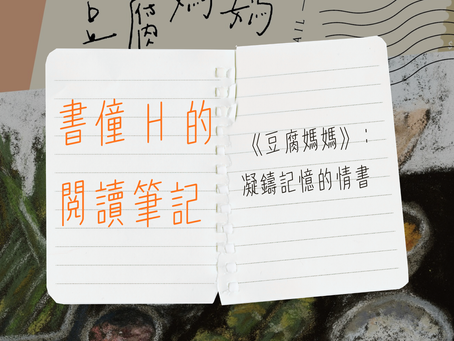 豆腐媽媽
AIL
書僮 H 的
閱讀筆記
《豆腐媽媽》:
凝鑄記憶的情書